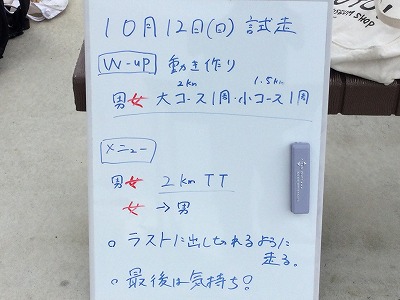 10月12日(日) 試走
W-up 動き作り
2km 1.5km
男女 大コース1周・小コース1周
メニュー
男女 2km TT
女→男
○ ラストに出しきれるように
走る。
○ 最後は気持ち!
SHOP